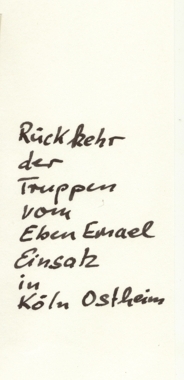 Rückkehr
der
Truppen
vom
Eben Emael
Einsatz
in
Köln Ostheim